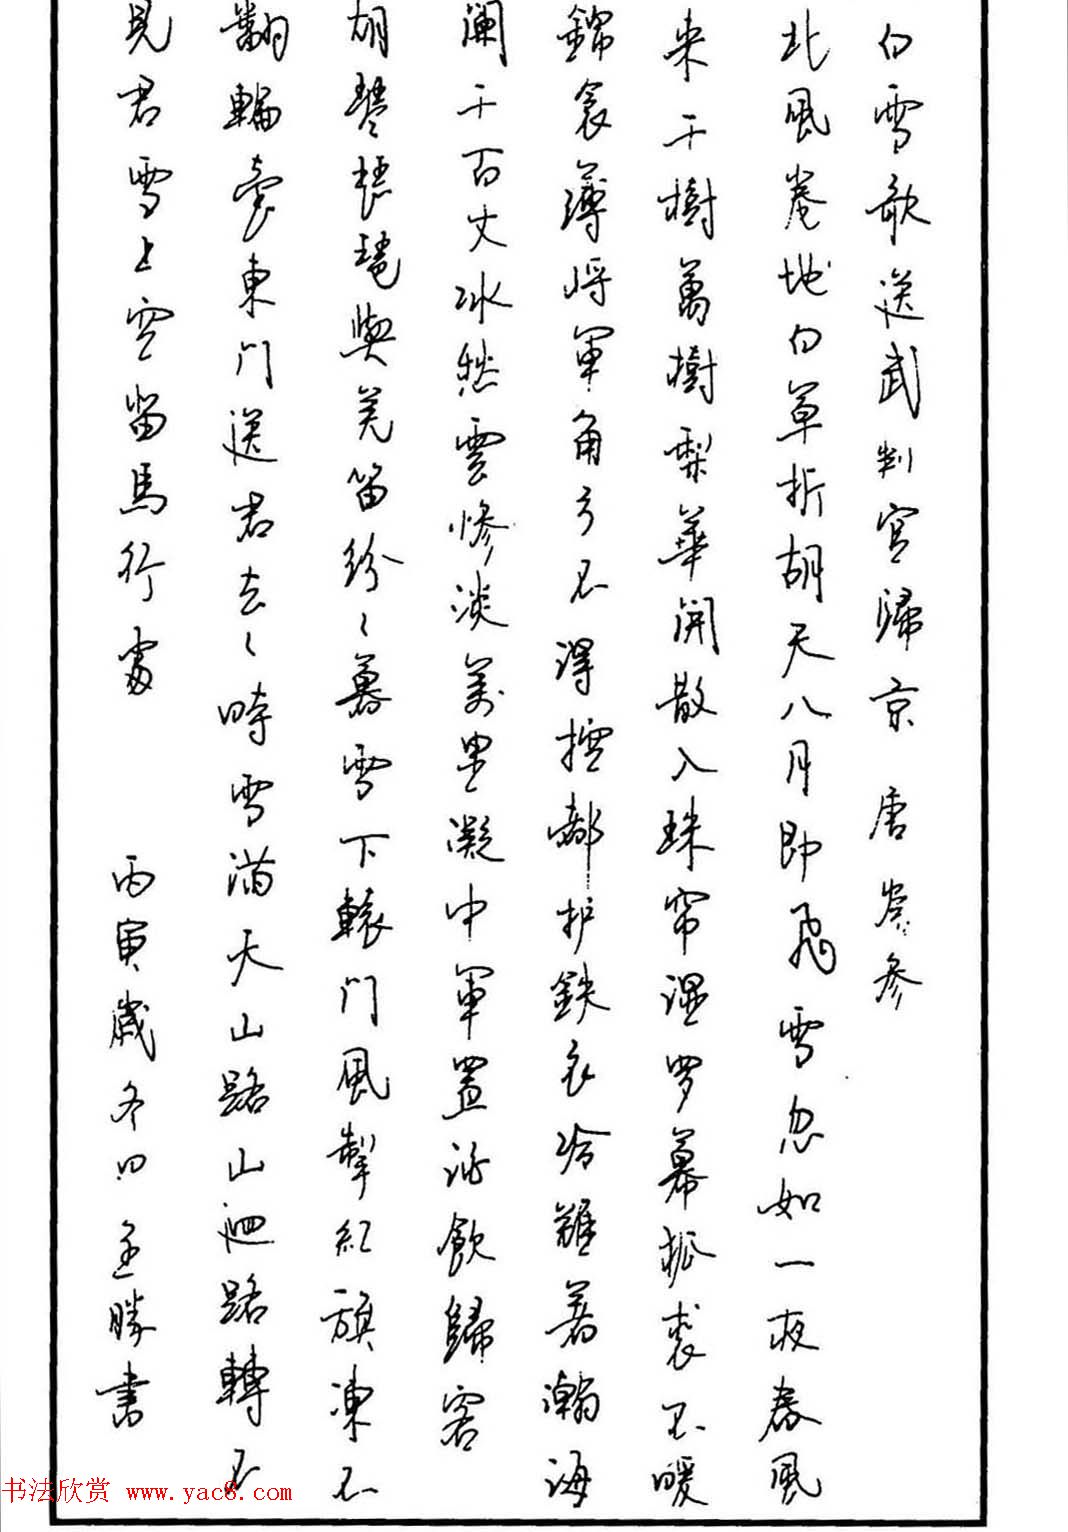 白雪歌送武判官歸京 唐 岑参
北風卷地白草折胡天八月即飛雪忽如一夜春風
来千樹萬樹梨華開散入珠帘湿罗幕狐裘不暖
錦衾薄将軍角弓不得控都护鉄衣冷難着瀚海
闌干百丈冰愁雲惨淡萬里凝中軍置酒飲歸客
胡琴琵琶與羌笛纷〻暮雪下轅門風掣紅旗凍不
翻輪臺東門送君去〻時雪满天山路山迴路轉不
見君雪上空留馬行處 丙寅歲冬日 勝書
书法欣赏 www.yac8.com